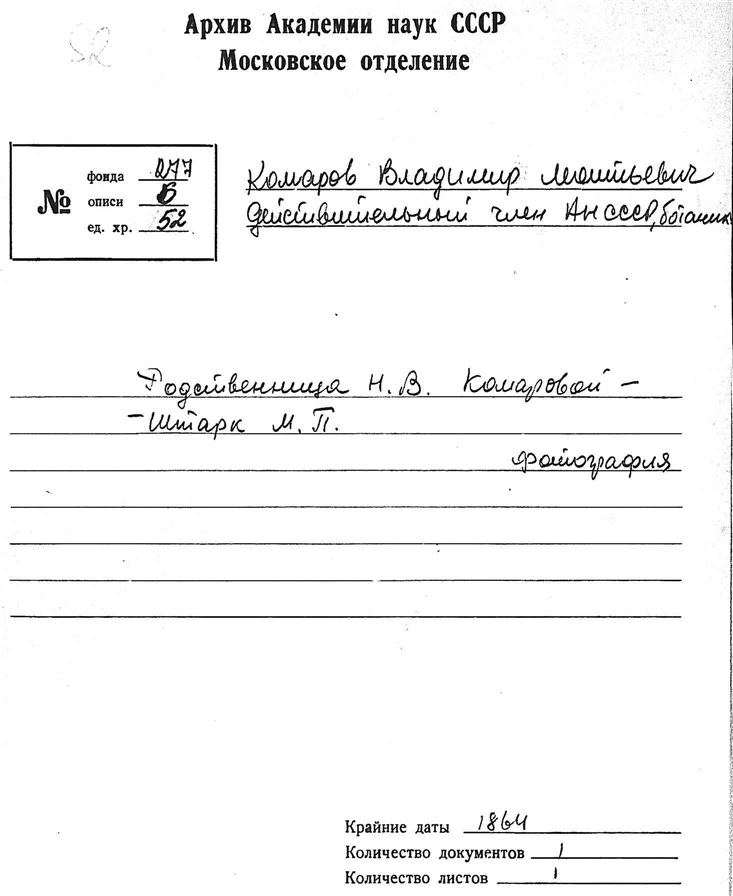 52
Архив Академии наук СССР
Московское отделение
№
фонда 277
описи Б
ед. хр. 52
Комаров Владимир Леонтьевич
действительный член АН СССР, ботаник
Родственница Н. В. Комаровой –
– Штарк М. П.
фотография
Крайние даты 1864
Количество документов 1
Количество листов 1